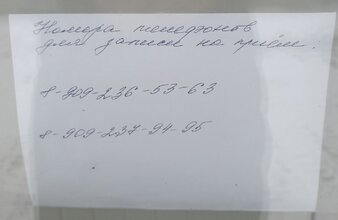 Номера телефонов
для записи на приём.
8-909-236-53-63
8-909-237-94-95